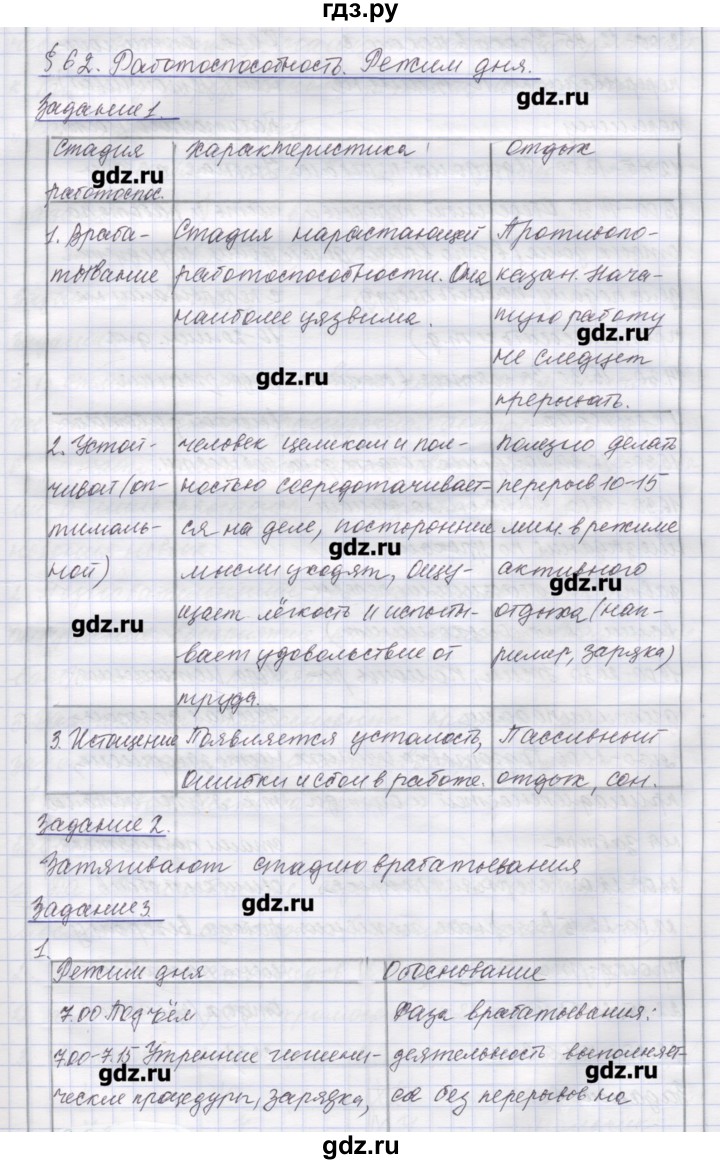 гдз.ру
§ 62. Работоспособность. Режим дня.
Задание 1.
gdz.ru
Стадия работоспос.
Характеристика
Отдых
gdz.ru
1. Враба-
тывание
Стадия нарастающей
работоспособности. Она
наиболее уязвима.
Противопо-
казан. Нача-
тую работу
не следует
прерывать.
gdz.ru
gdz.ru
2. Устой-
чивой (оп-
тималь-
ной)
человек целиком и пол-
ностью сосредотачивает-
ся на деле, посторонние
мысли уходят, ощу-
щает лёгкость и испыты-
вает удовольствие от
труда.
полезно делать
перерыв 10-15
мин. в режиме
активного
отдыха (нап-
ример, зарядка)
gdz.ru
gdz.ru
gdz.ru
3. Истощение
Появляется усталость,
ошибки и сбои в работе.
Пассивный
отдых, сон.
Задание 2.
Затягивают стадию врабатывания
Задание 3.
gdz.ru
1.
Режим дня
Обоснование
7.00 Подъём
7.00-7.15 Утренние гигиени-
ческие процедуры, зарядка,
Фаза врабатывания:
деятельность выполняет-
ся без перерывов на
gdz.ru
gdz.ru
gdz.ru